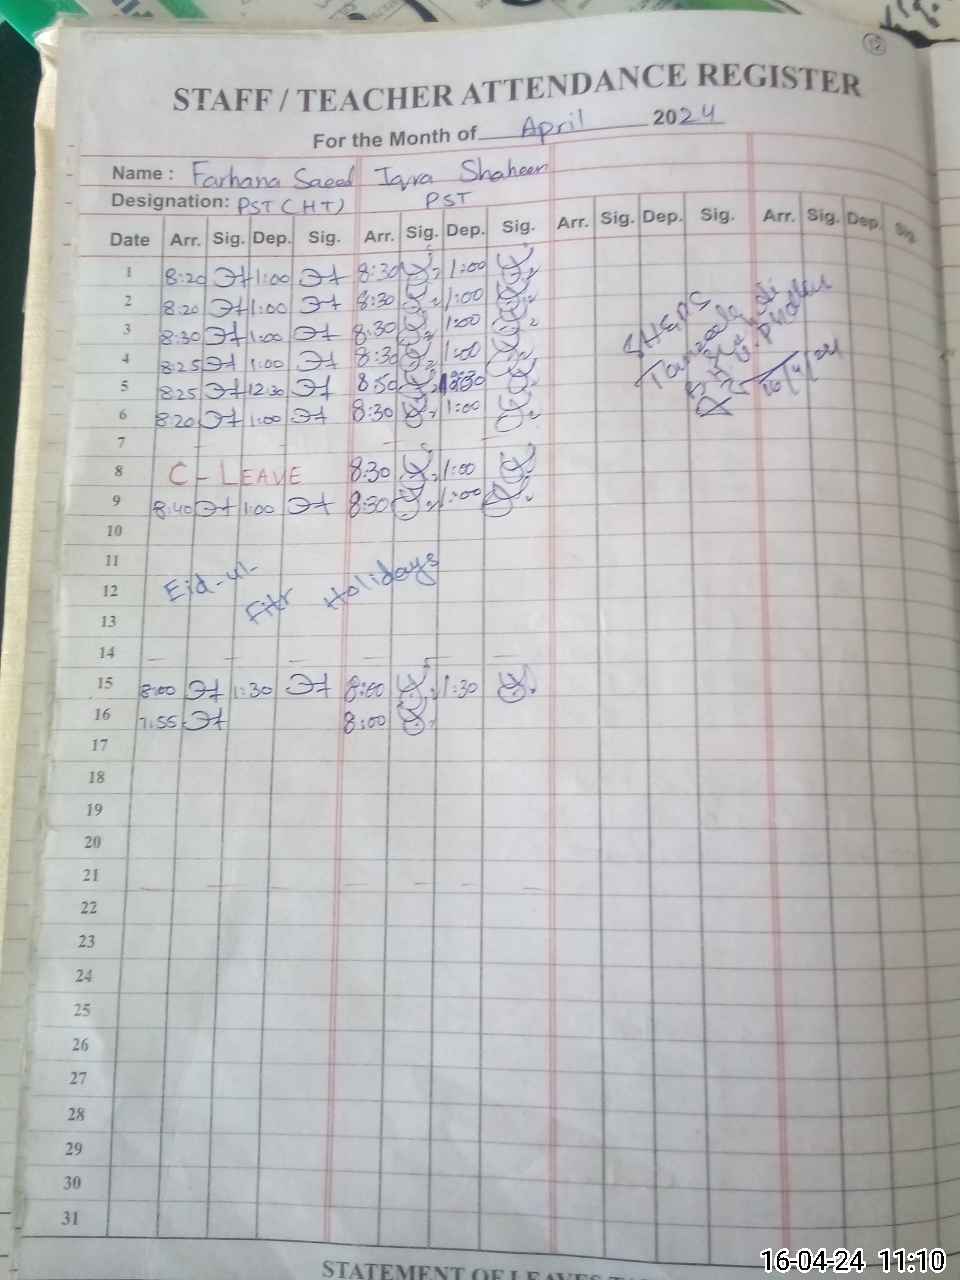 12
STAFF / TEACHER ATTENDANCE REGISTER
For the Month of April 2024
Name : Farhana Saeed Iqra Shaheen
Designation: PST (HT) PST
Date Arr. Sig. Dep. Sig. Arr. Sig. Dep. Sig. Arr. Sig. Dep. Sig. Arr. Sig. Dep. Sig.
1 8:20 1:00 8:30 1:00
2 8:20 1:00 8:30 1:00
3 8:30 1:00 8:30 1:00
4 8:25 1:00 8:30 1:00
5 8:25 12:30 8:30
6 8:20 1:00 8:30 1:00
7
8 C - LEAVE 8:30 1:00
9 8:40 1:00 8:30 1:00
10
11
12 Eid-ul-
Fitr Holidays
13
14
15 8:00 1:30 8:00 1:30
16 7:55 8:00
17
18
19
20
21
22
23
24
25
26
27
28
29
30
31
16/4/24
STATEMENT OF LEAVES
16-04-24 11:10